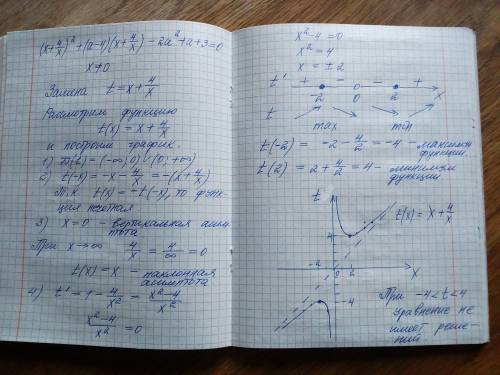 (x+4/x)² + (a-4)(x+4/x) - 2a² + a + 3 = 0
x≠0
Замена t = x + 4/x
Рассмотрим функцию
t(x) = x + 4/x
и построим график.
1) D(t) = (-∞; 0) ∪ (0; +∞)
2) t(-x) = -x - 4/x = -(x + 4/x)
т.к. t(x) = -t(-x), то функ-
ция нечётная
3) x = 0 - вертикальная асим-
птота
При x→∞ 4/x = 4/∞ = 0
t(x) = x - наклонная
асимптота
4) t' = 1 - 4/x² = (x²-4)/x²
(x²-4)/x² = 0
x² - 4 = 0
x² = 4
x = ±2
t' + - - +
-2 0 2 x
t
max min
t(-2) = -2 - 4/2 = -4 - максимум
функции.
t(2) = 2 + 4/2 = 4 - минимум
функции
t
t(x) = x + 4/x
4
-2 0 2 x
-4
При -4 < t < 4
уравнение не
имеет реше-
ний.